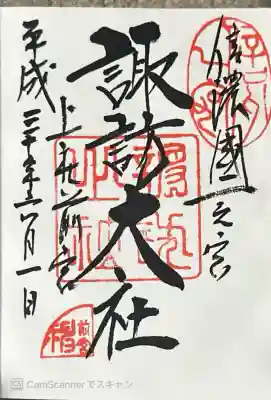 信濃國一之宮
諏訪大社
上社前宮
平成三十年六月一日
CamScannerでスキャン